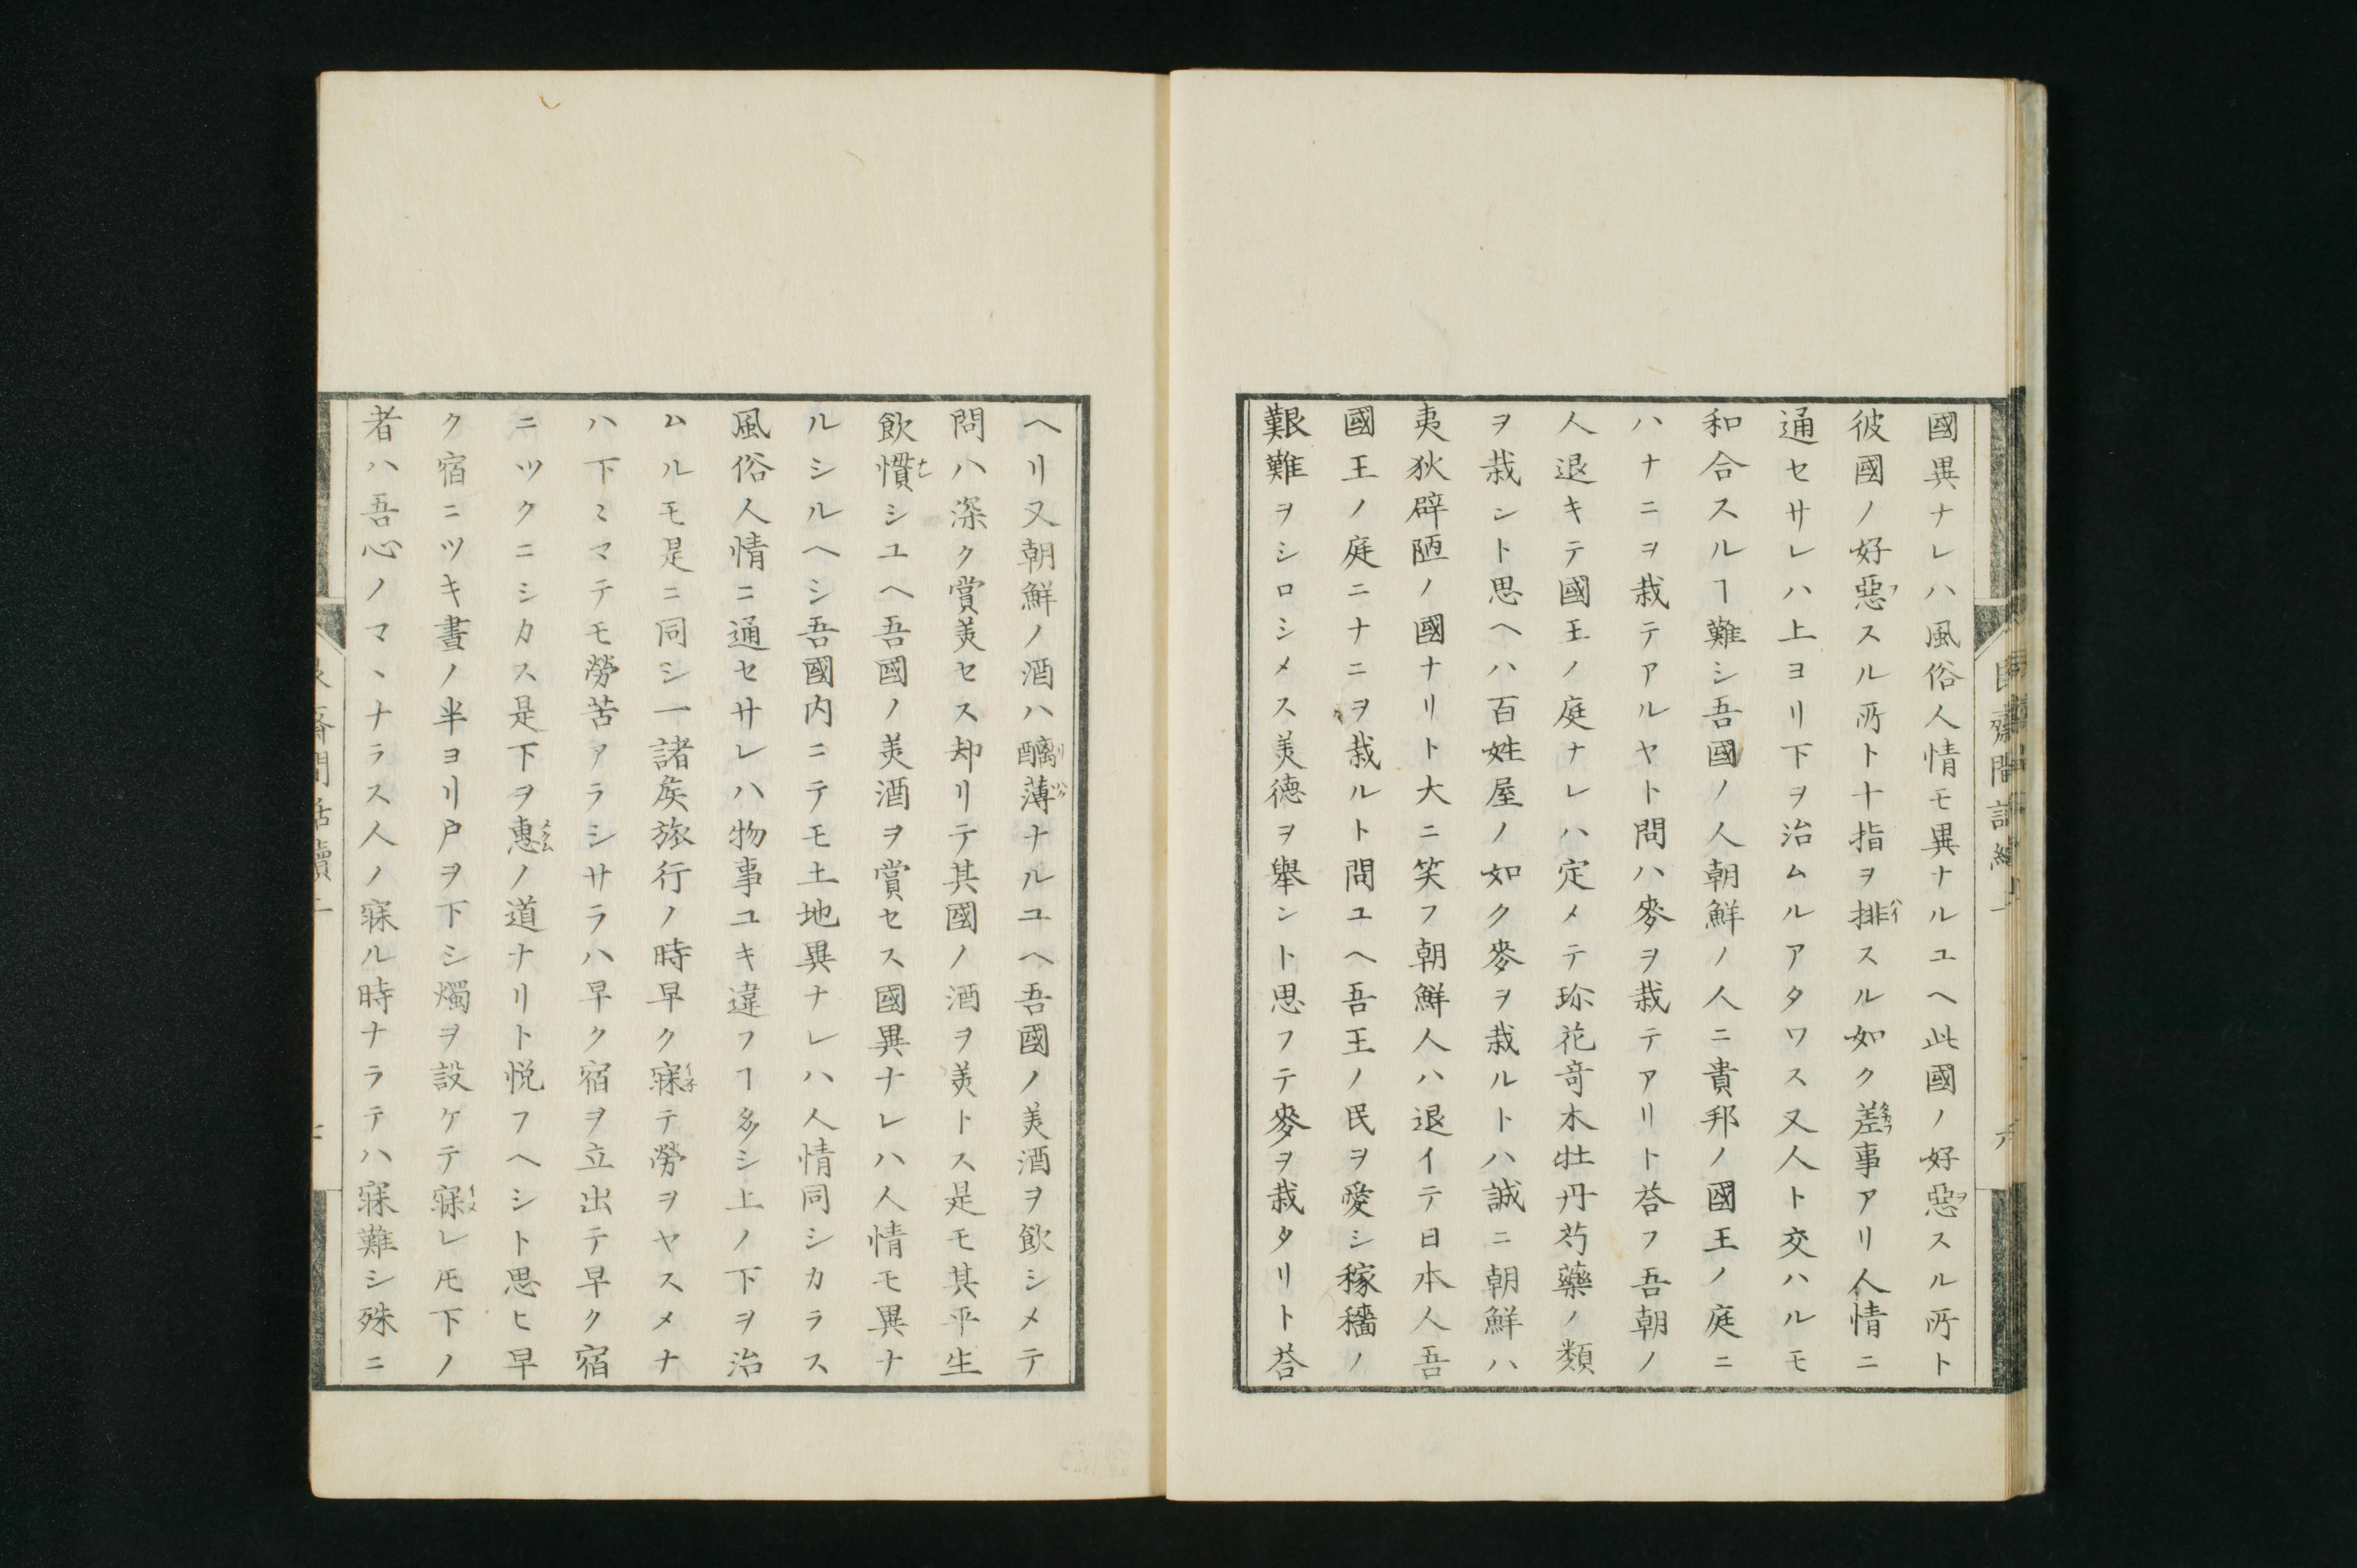 國異ナレハ風俗人情モ異ナルユヘ此國ノ好惡スル所ト
彼國ノ好惡スル所ト十指ヲ排スル如ク差事アリ人情ニ
通セサレハ上ヨリ下ヲ治ムルアタワス又人ト交ハルモ
和合スルヿ難シ吾國ノ人朝鮮ノ人ニ貴邦ノ國王ノ庭ニ
ハナニヲ栽テアルヤト問ハ麥ヲ栽テアリト荅フ吾朝ノ
人退キテ國王ノ庭ナレハ定メテ珎花竒木牡丹芍藥ノ類
ヲ栽ント思ヘハ百姓屋ノ如ク麥ヲ栽ルトハ誠ニ朝鮮ハ
夷狄辟陋ノ國ナリト大ニ笑フ朝鮮人ハ退イテ日本人吾
國王ノ庭ニナニヲ栽ルト問ユヘ吾王ノ民ヲ愛シ稼穡ノ
艱難ヲシロシメス美徳ヲ舉ント思フテ麥ヲ栽タリト荅
ヘリ又朝鮮ノ酒ハ醨薄ナルユヘ吾國ノ美酒ヲ飲シメテ
問ハ深ク賞美セス却リテ其國ノ酒ヲ美トス是モ其平生
飲慣シユヘ吾國ノ美酒ヲ賞セス國異ナレハ人情モ異ナ
ルシルヘシ吾國内ニテモ土地異ナレハ人情同シカラス
風俗人情ニ通セサレハ物事ユキ違フヿ多シ上ノ下ヲ治
ムルモ是ニ同シ一諸矦旅行ノ時早ク寐テ勞ヲヤスメナ
ハ下〻マテモ勞苦アラシサラハ早ク宿ヲ立出テ早ク宿
ニツクニシカス是下ヲ惠ノ道ナリト悦フヘシト思ヒ早
ク宿ニツキ晝ノ半ヨリ戸ヲ下シ燭ヲ設ケテ寐レ𪜈下ノ
者ハ吾心ノマヽナラス人ノ寐ル時ナラテハ寐難シ殊ニ